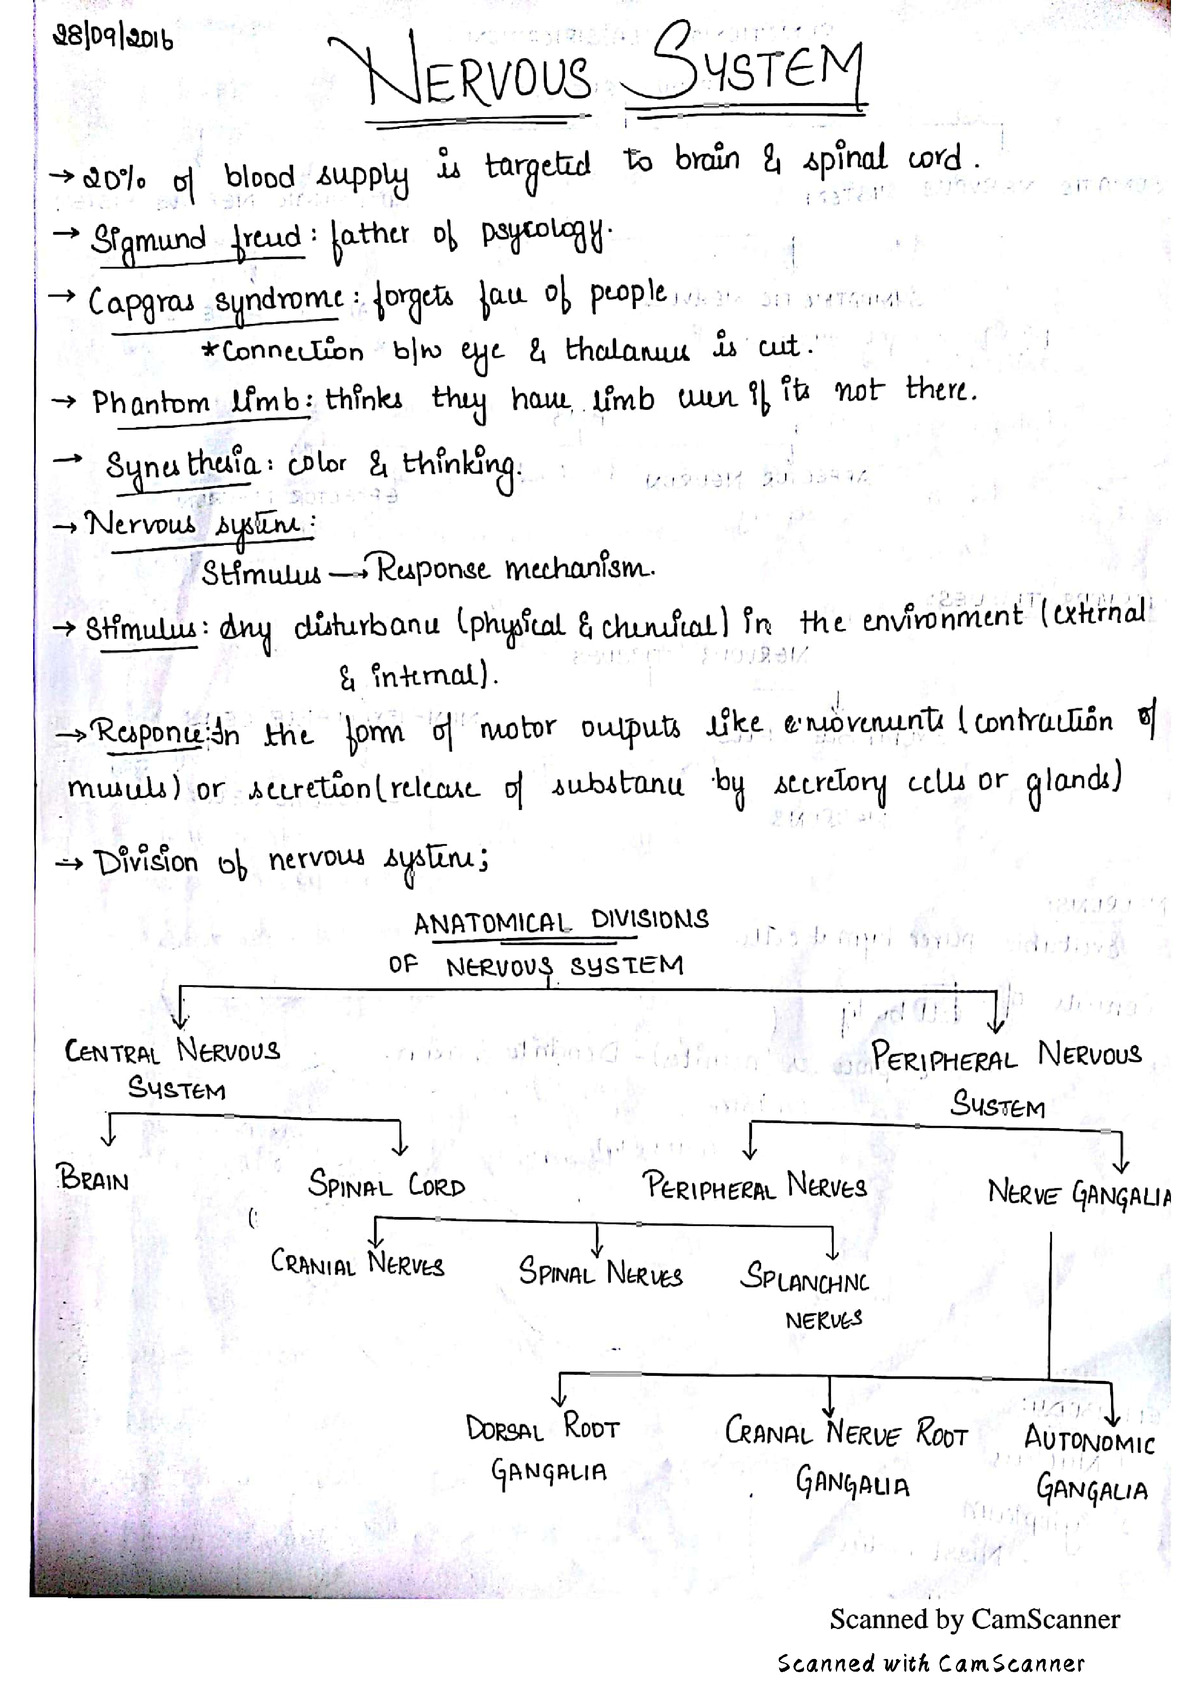 28/09/2016
NERVOUS SYSTEM
→ 20% of blood supply is targeted to brain & spinal cord.
→ Sigmund freud: father of psycology.
→ Capgras syndrome: forgets face of people
*Connection b/w eye & thalamus is cut.
→ Phantom limb: thinks they have limb even if its not there.
→ Synesthesia: color & thinking.
→ Nervous system:
Stimulus → Response mechanism.
→ Stimulus: Any disturbance (physical & chemical) in the environment (external
& internal).
→ Responce: In the form of motor outputs like movements (contraction of
muscles) or secretion (release of substance by secretory cells or glands)
→ Division of nervous system;
ANATOMICAL DIVISIONS
OF NERVOUS SYSTEM
CENTRAL NERVOUS PERIPHERAL NERVOUS
SYSTEM SYSTEM
BRAIN SPINAL CORD PERIPHERAL NERVES NERVE GANGALIA
CRANIAL NERVES SPINAL NERVES SPLANCHNC
NERVES
DORSAL ROOT CRANAL NERVE ROOT AUTONOMIC
GANGALIA GANGALIA GANGALIA
Scanned by CamScanner
Scanned with CamScanner